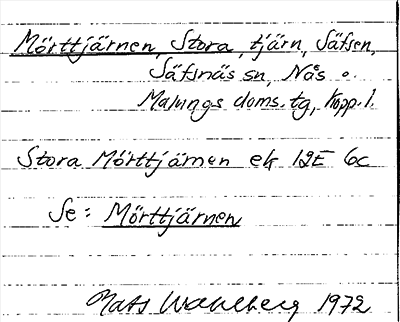 Mörttjärnen, Stora, tjärn, Säfsen,
Säfsnäs sn, Nås o.
Malungs doms. tg, Kopp. l.
Stora Mörttjärnen ek 12E 6c
Se: Mörttjärnen
Mats Wahlberg 1972